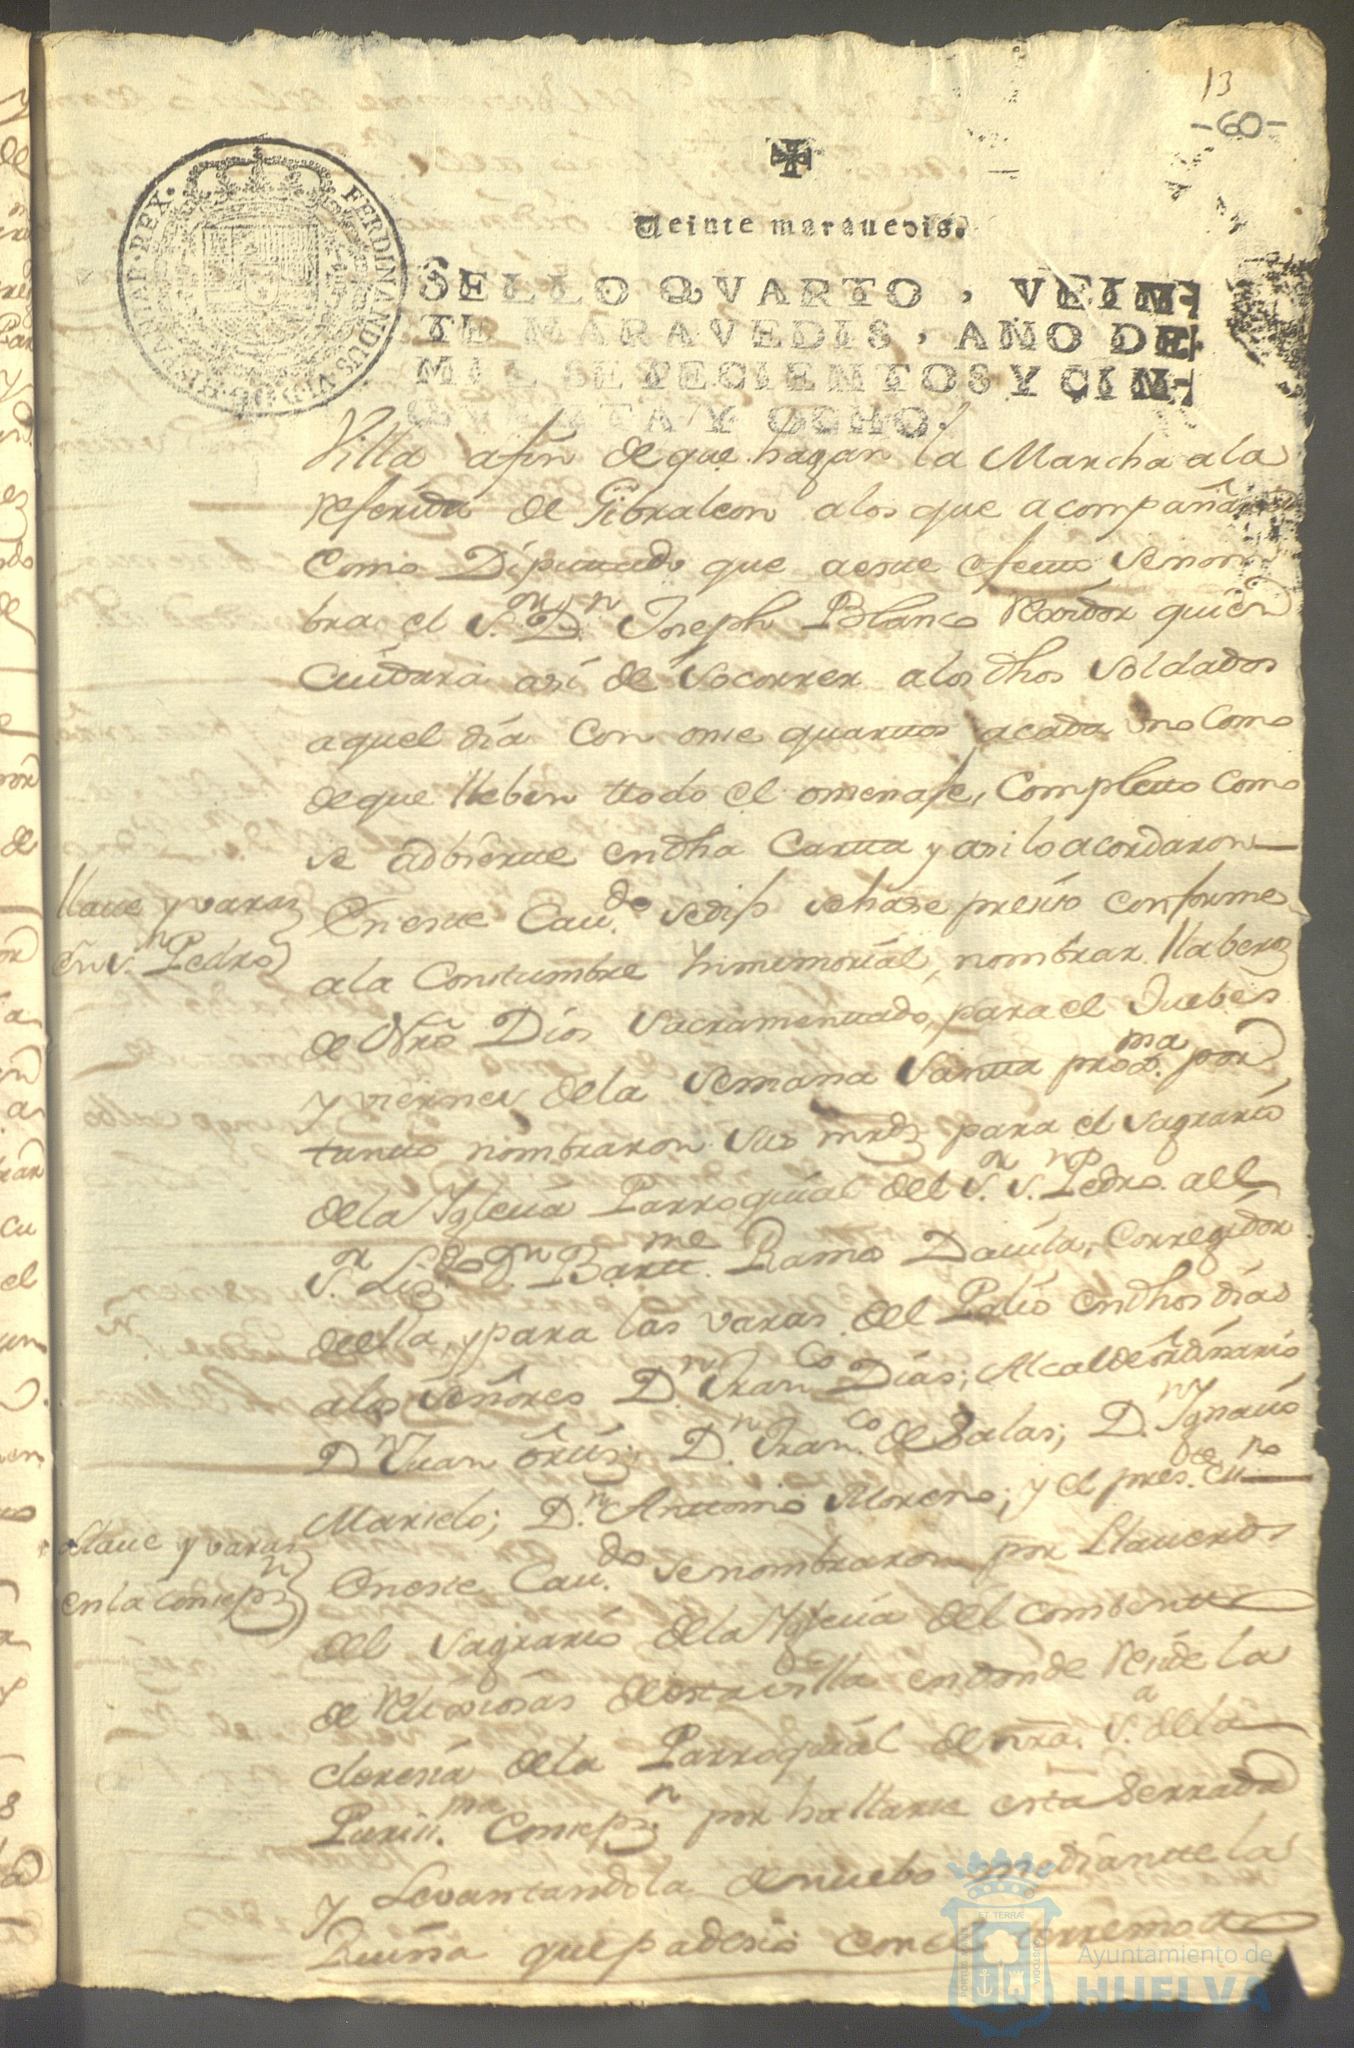 13
-60-
FERDINANDUS.VI.D.G. HISPANIAR.REX.
Veinte marauedis.
SELLO QVARTO, VEIN-
TE MARAVEDIS, AÑO DE
MIL SETECIENTOS Y CIN-
QVENTA Y OCHO.
Villa afin de que hagan la Marcha a la
referida de Gibraleon a los que acompañará
Como Diputado que a este efecto se nom
bra el S.or D.n Joseph Blanco Rexidor quien
Cuidará asi de Socorrer a los dhos Soldados
aquel dia con onse quartos a cada uno como
de que lleben ttodo el omenaje, Completto como
se adbierte en dha Cartta y asi lo acordaron
llaue y varas
en S.n Pedro
En este Cau.do se dijo se hase presiso conforme
a la Constumbre Inmemorial, nombrar llaberos
de Nrô Dios Sacramenttado, para el Juebes
y viernes de la Semana Santta proxa.ma por
tantto nombraron sus mrds para el Sagrario
de la Yglecia Parroquial del S.or S.n Pedro al
S.or Liz.do D.n Bartt.me Ramos Dauila, Corregidor
de ella, y para las varas del Palio en dhos dias
a los Señores D.n Fran.co Dias; Alcalde ordinario
D.n Juan Ortis; D.n Fran.co de Salas; D.n Ygnacio
Marielo; D.n Anttonio Moreno; y el pres.te es.no
Llaue y varas
en la Consep.n
En este Cau.do se nombraron por Llaueros
del Sagrario de la Yglecia del Combentto
de Relixiosas de esta villa en donde Recide la
cleresia de la Parroquial de nra. S.a de la
Puriss.ma Consepz.n por hallarse esta Serrada
y Levantandola de nuebo mediante la
Ruina que padesio con el terremotto
Ayuntamiento de
HUELVA